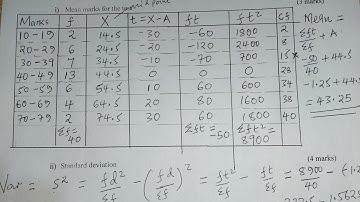 i) Mean marks for the
(3 marks)
Marks f X t=X-A ft ft² cf
10-19 2 14.5 -30 -60 1800 2
20-29 6 24.5 -20 -120 2400 8
30-39 7 34.5 -10 -70 700 15
40-49 13 44.5 0 0 0 28
50-59 6 54.5 10 60 600 34
60-69 4 64.5 20 80 1600 38
70-79 2 74.5 30 60 1800 40
Σf= 40 Σft= -50 Σft²= 8900
Mean =
Σft + A
Σf
-50 + 44.5
40
-1.25 + 44.5
= 43.25
ii) Standard deviation
(4 marks)
Var = s² = fd²/Σf - (fd/Σf)² = ft²/Σf - ft/Σf = 8900/40 - (-1.2
- 1.5625